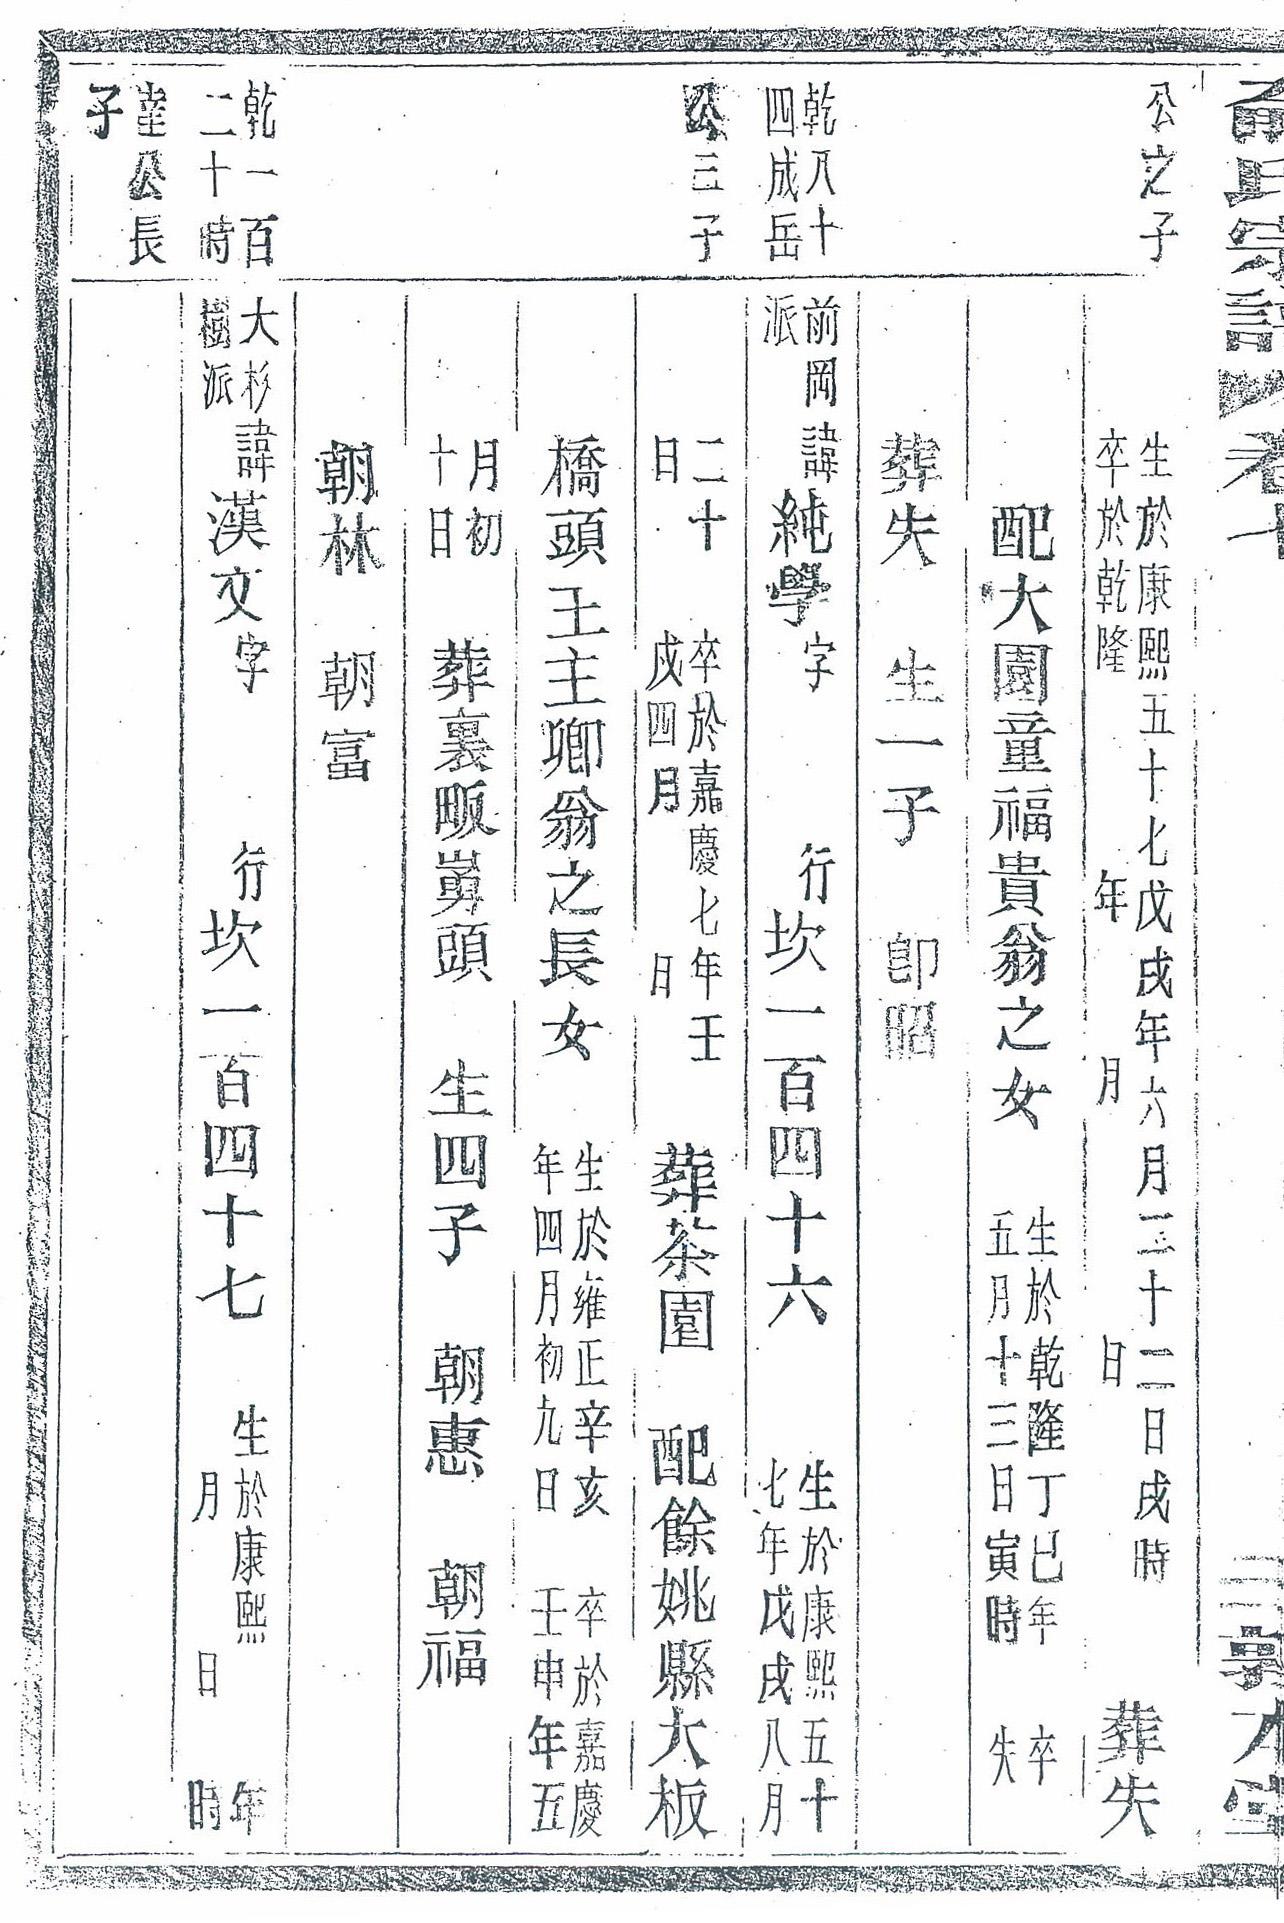 氏宗譜 卷七
公之子
生於康熙五十七戊戌年六月二十二日戌時
卒於乾隆 年 月 日
葬失
配大園童福貴翁之女
生於乾隆丁巳年 卒
五月十三日寅時 失
葬失 生一子 卽昭
乾八十
四成岳
公三子
前岡
派
諱純學字 行坎一百四十六
生於康熙五十
七年戊戌八月
二十
日
卒於嘉慶七年壬
戌四月 日
葬茶園 配餘姚縣大板
橋頭王主卿翁之長女
生於雍正辛亥
年四月初九日
卒於嘉慶
壬申年五
月初
十日
葬裏畈頭 生四子 朝惠 朝福
朝林 朝富
乾一百
二十時
達公長
子
大杉
樹派
諱漢文字 行坎一百四十七
生於康熙 年
月 日 時